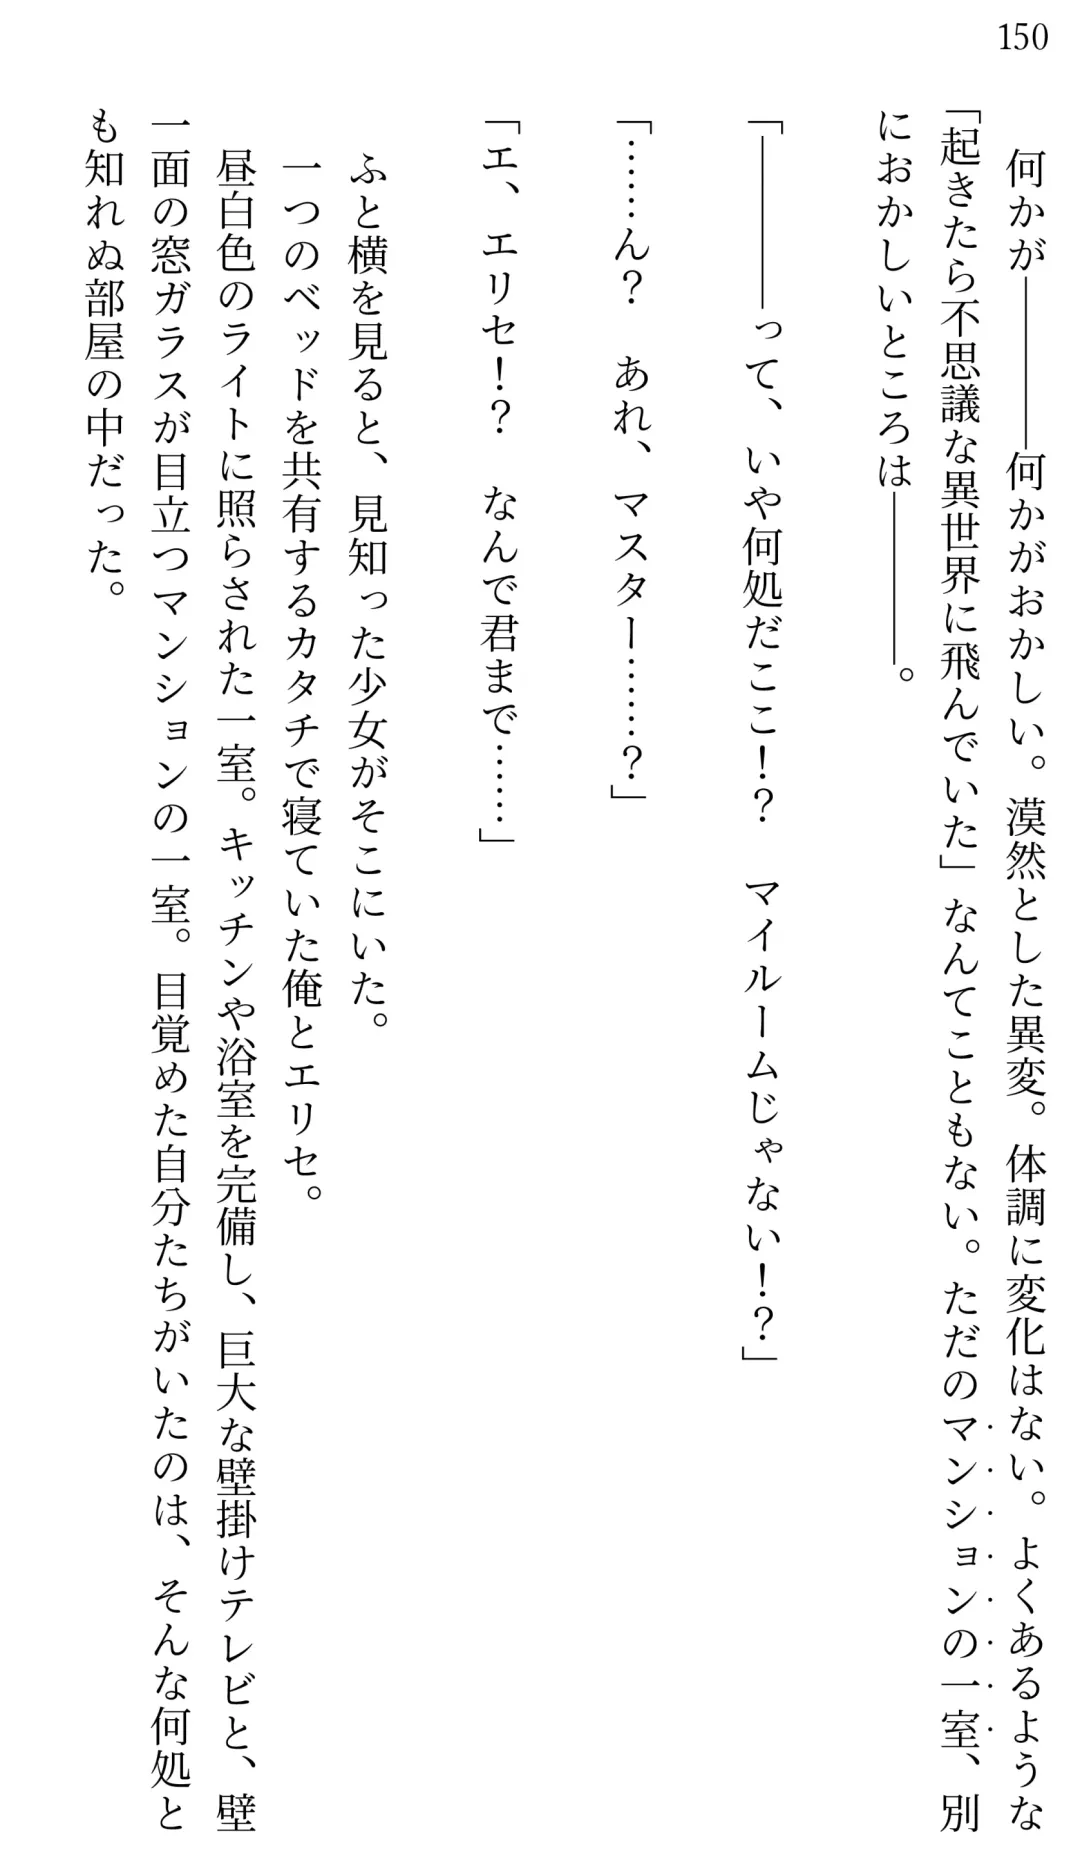 150
何かが――――何かがおかしい。漠然とした異変。体調に変化はない。よくあるような
「起きたら不思議な異世界に飛んでいた」なんてこともない。ただのマンションの一室、別
におかしいところは――――。
「――――って、いや何処だここ！？　マイルームじゃない！？」
「……ん？　あれ、マスター……？」
「エ、エリセ！？　なんで君まで……」
ふと横を見ると、見知った少女がそこにいた。
一つのベッドを共有するカタチで寝ていた俺とエリセ。
昼白色のライトに照らされた一室。キッチンや浴室を完備し、巨大な壁掛けテレビと、壁
一面の窓ガラスが目立つマンションの一室。目覚めた自分たちがいたのは、そんな何処と
も知れぬ部屋の中だった。